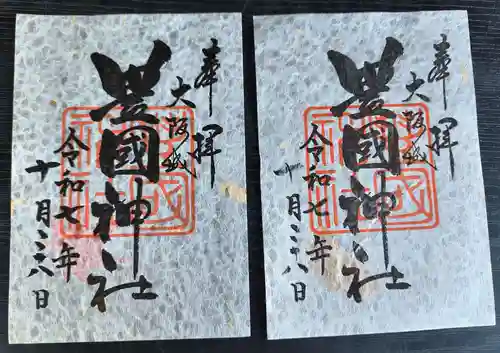 奉拝
大阪城
豊國神社
令和七年
十月二十八日
奉拝
大阪城
豊國神社
令和七年
十月二十八日